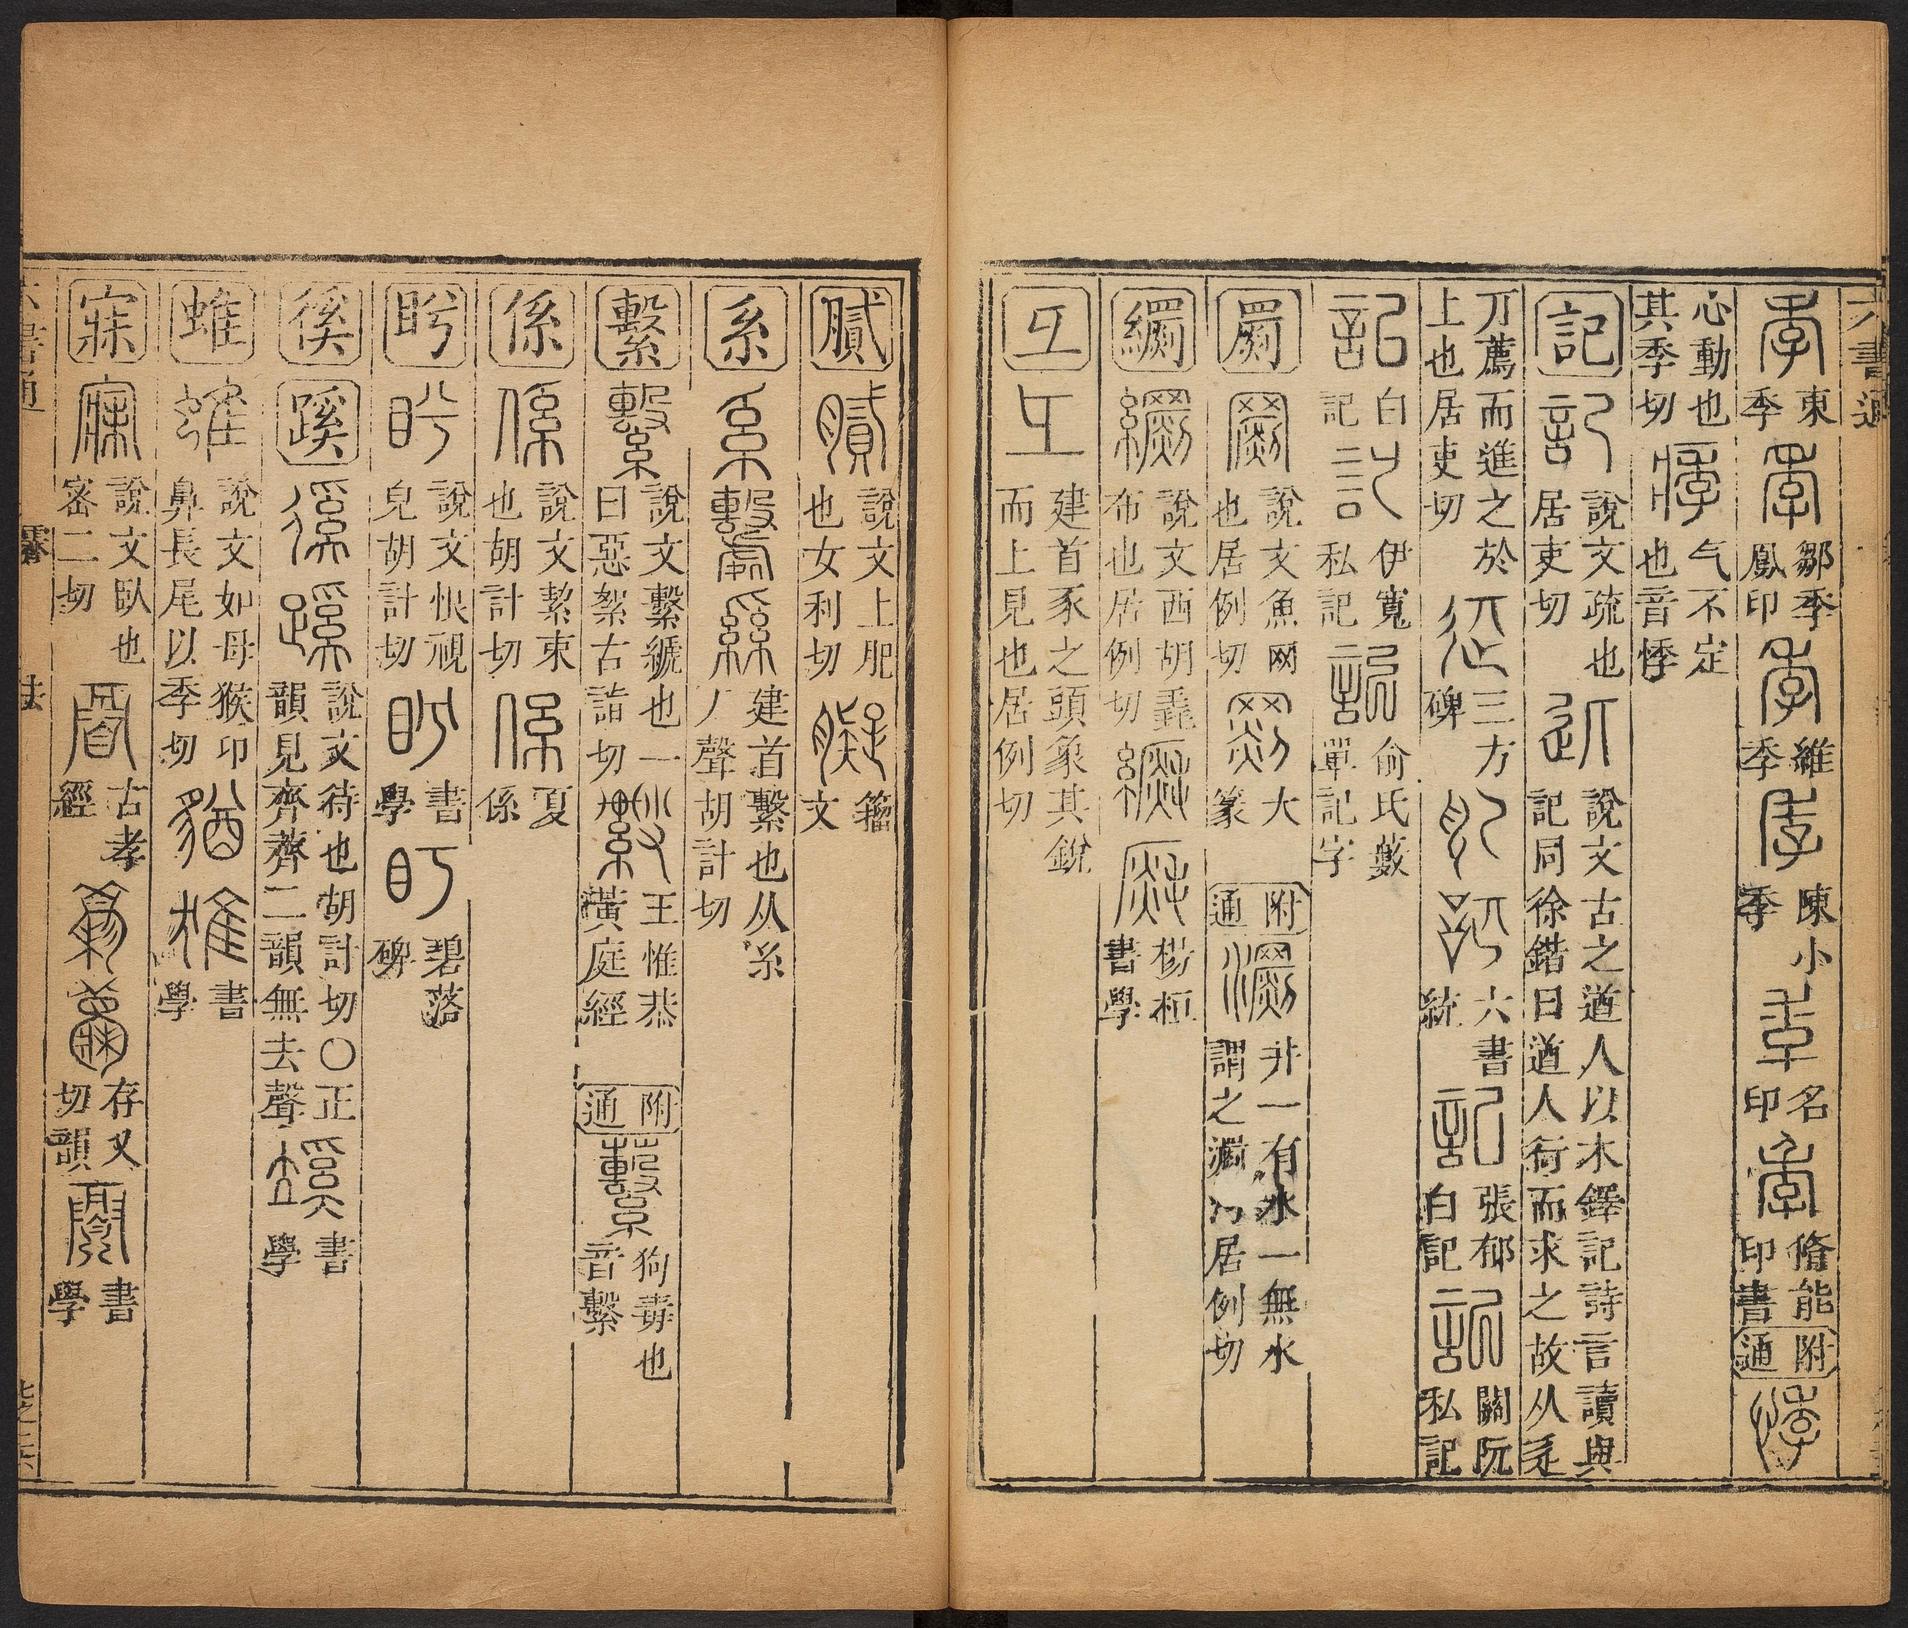 六書通
東季 鄒季鳳印 維季 陳小季 名印 脩能印書 附通
心動也其季切 气不定也音悸
記 說文疏也居吏切 說文古之遒人以木鐸記詩言讀與記同徐鍇曰遒人行而求之故从辵
丌薦而進之於上也居吏切 三方碑 六書統 張郁白記 關阮私記
白記 伊寬私記 俞氏藪單記字
罽 說文魚网也居例切 大篆 附通 井一有水一無水謂之瀱汋居例切
繝 說文西胡毳布也居例切 楊桓書學
彑 建首豕之頭象其銳而上見也居例切
膩 說文上肥也女利切 籀文
系 建首繫也从糸丿聲胡計切
繫 說文繫𦃇也一曰惡絮古詣切 王惟恭黃庭經 附通 狗毒也音繫
係 說文絜束也胡計切 夏係
盻 說文恨視皃胡計切 書學 碧落碑
徯 蹊 說文待也胡計切〇正韻見齊薺二韻無去聲 書學
蜼 說文如母猴卬鼻長尾以季切 書學
寐 說文臥也密二切 古孝經 存乂切韻 書學
六書通
去